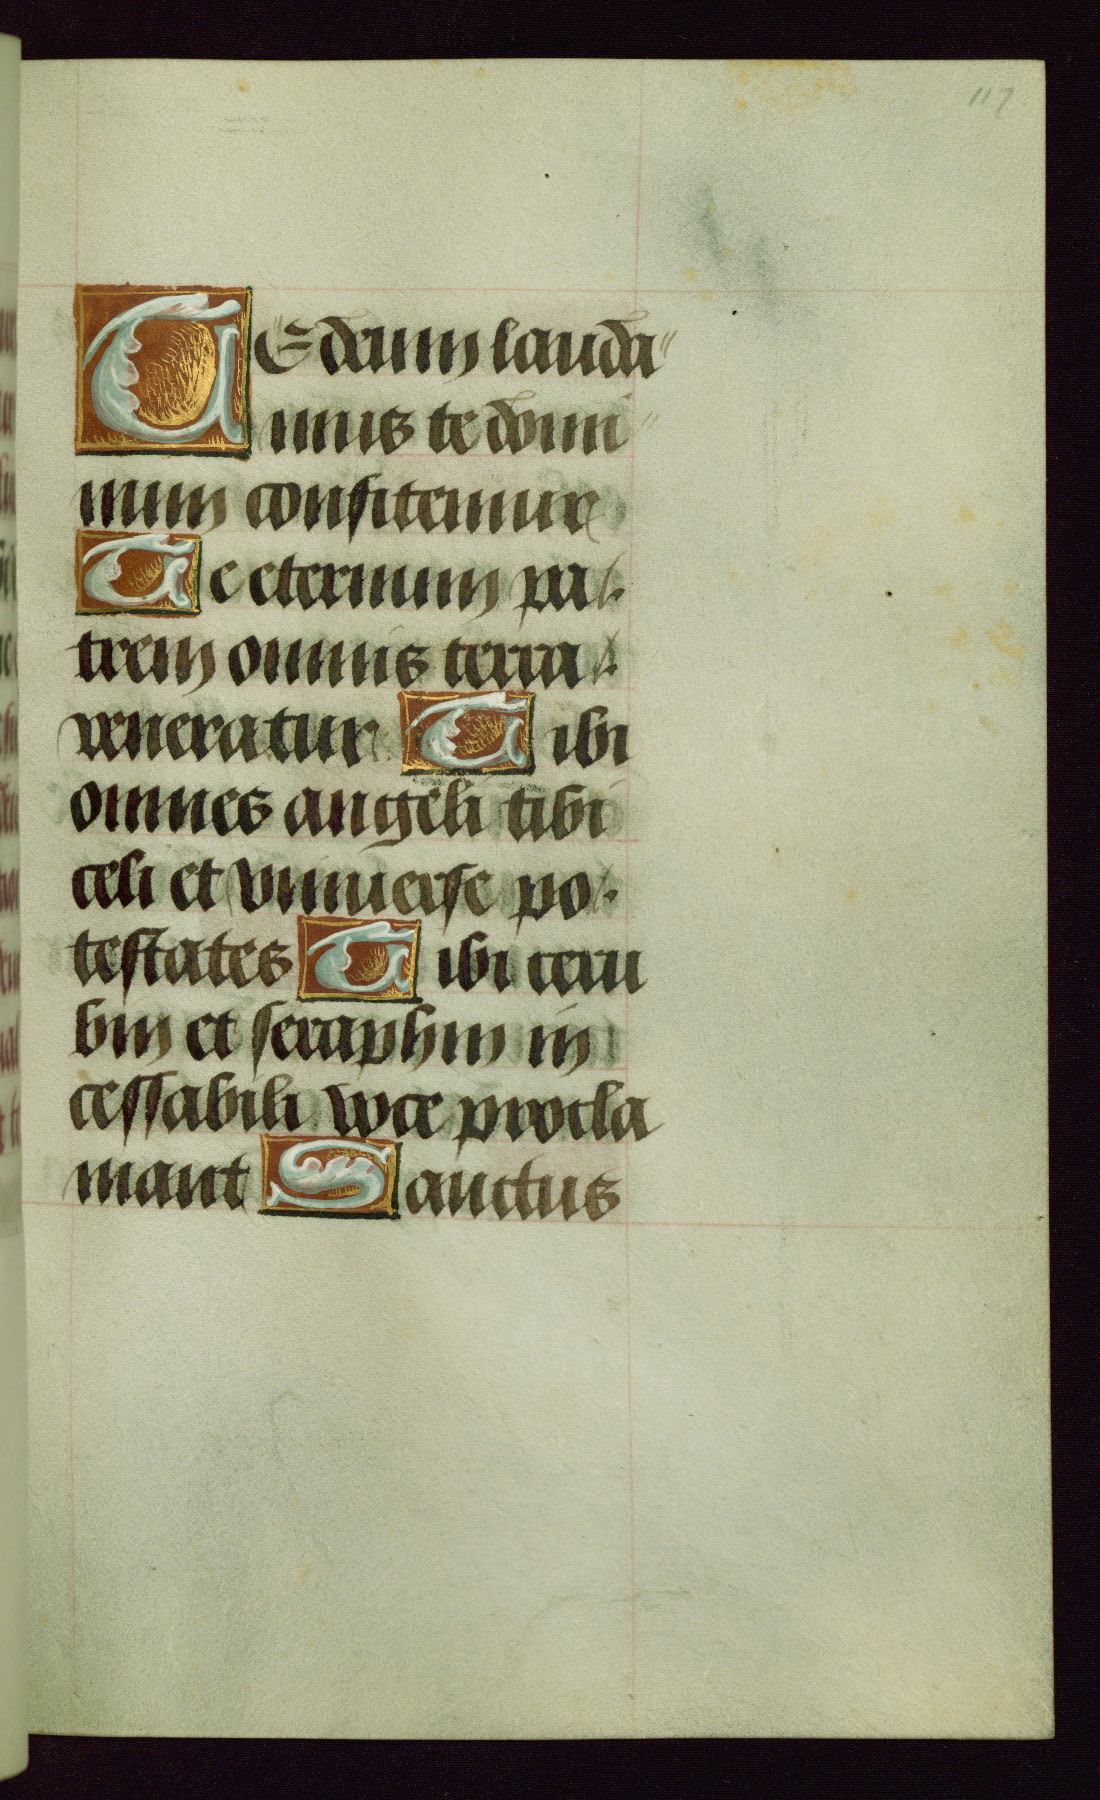 117
TE deum lauda
mus te domi
num confitemur
Te eternum pa
trem omnis terra
veneratur Tibi
omnes angeli tibi
celi et vniuerse po
testates Tibi ceru
bin et seraphin in
cessabili voce procla
mant Sanctus